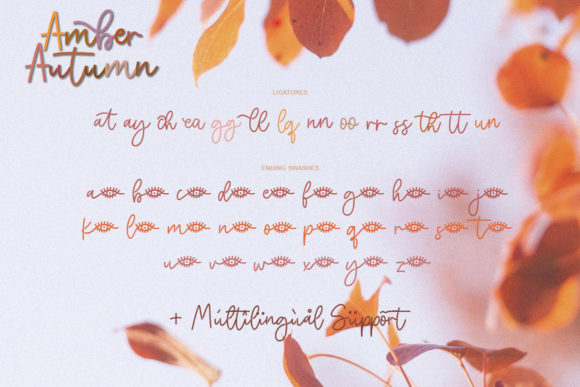 Amber
Autumn
LIGATURES
at ay ch ea gg ll lq nn oo rr ss th tt un
ENDING SWASHES
a b c d e f g h i j
k l m n o p q r s t
u v w x y z
+ Múltîlingùål Süppõrt